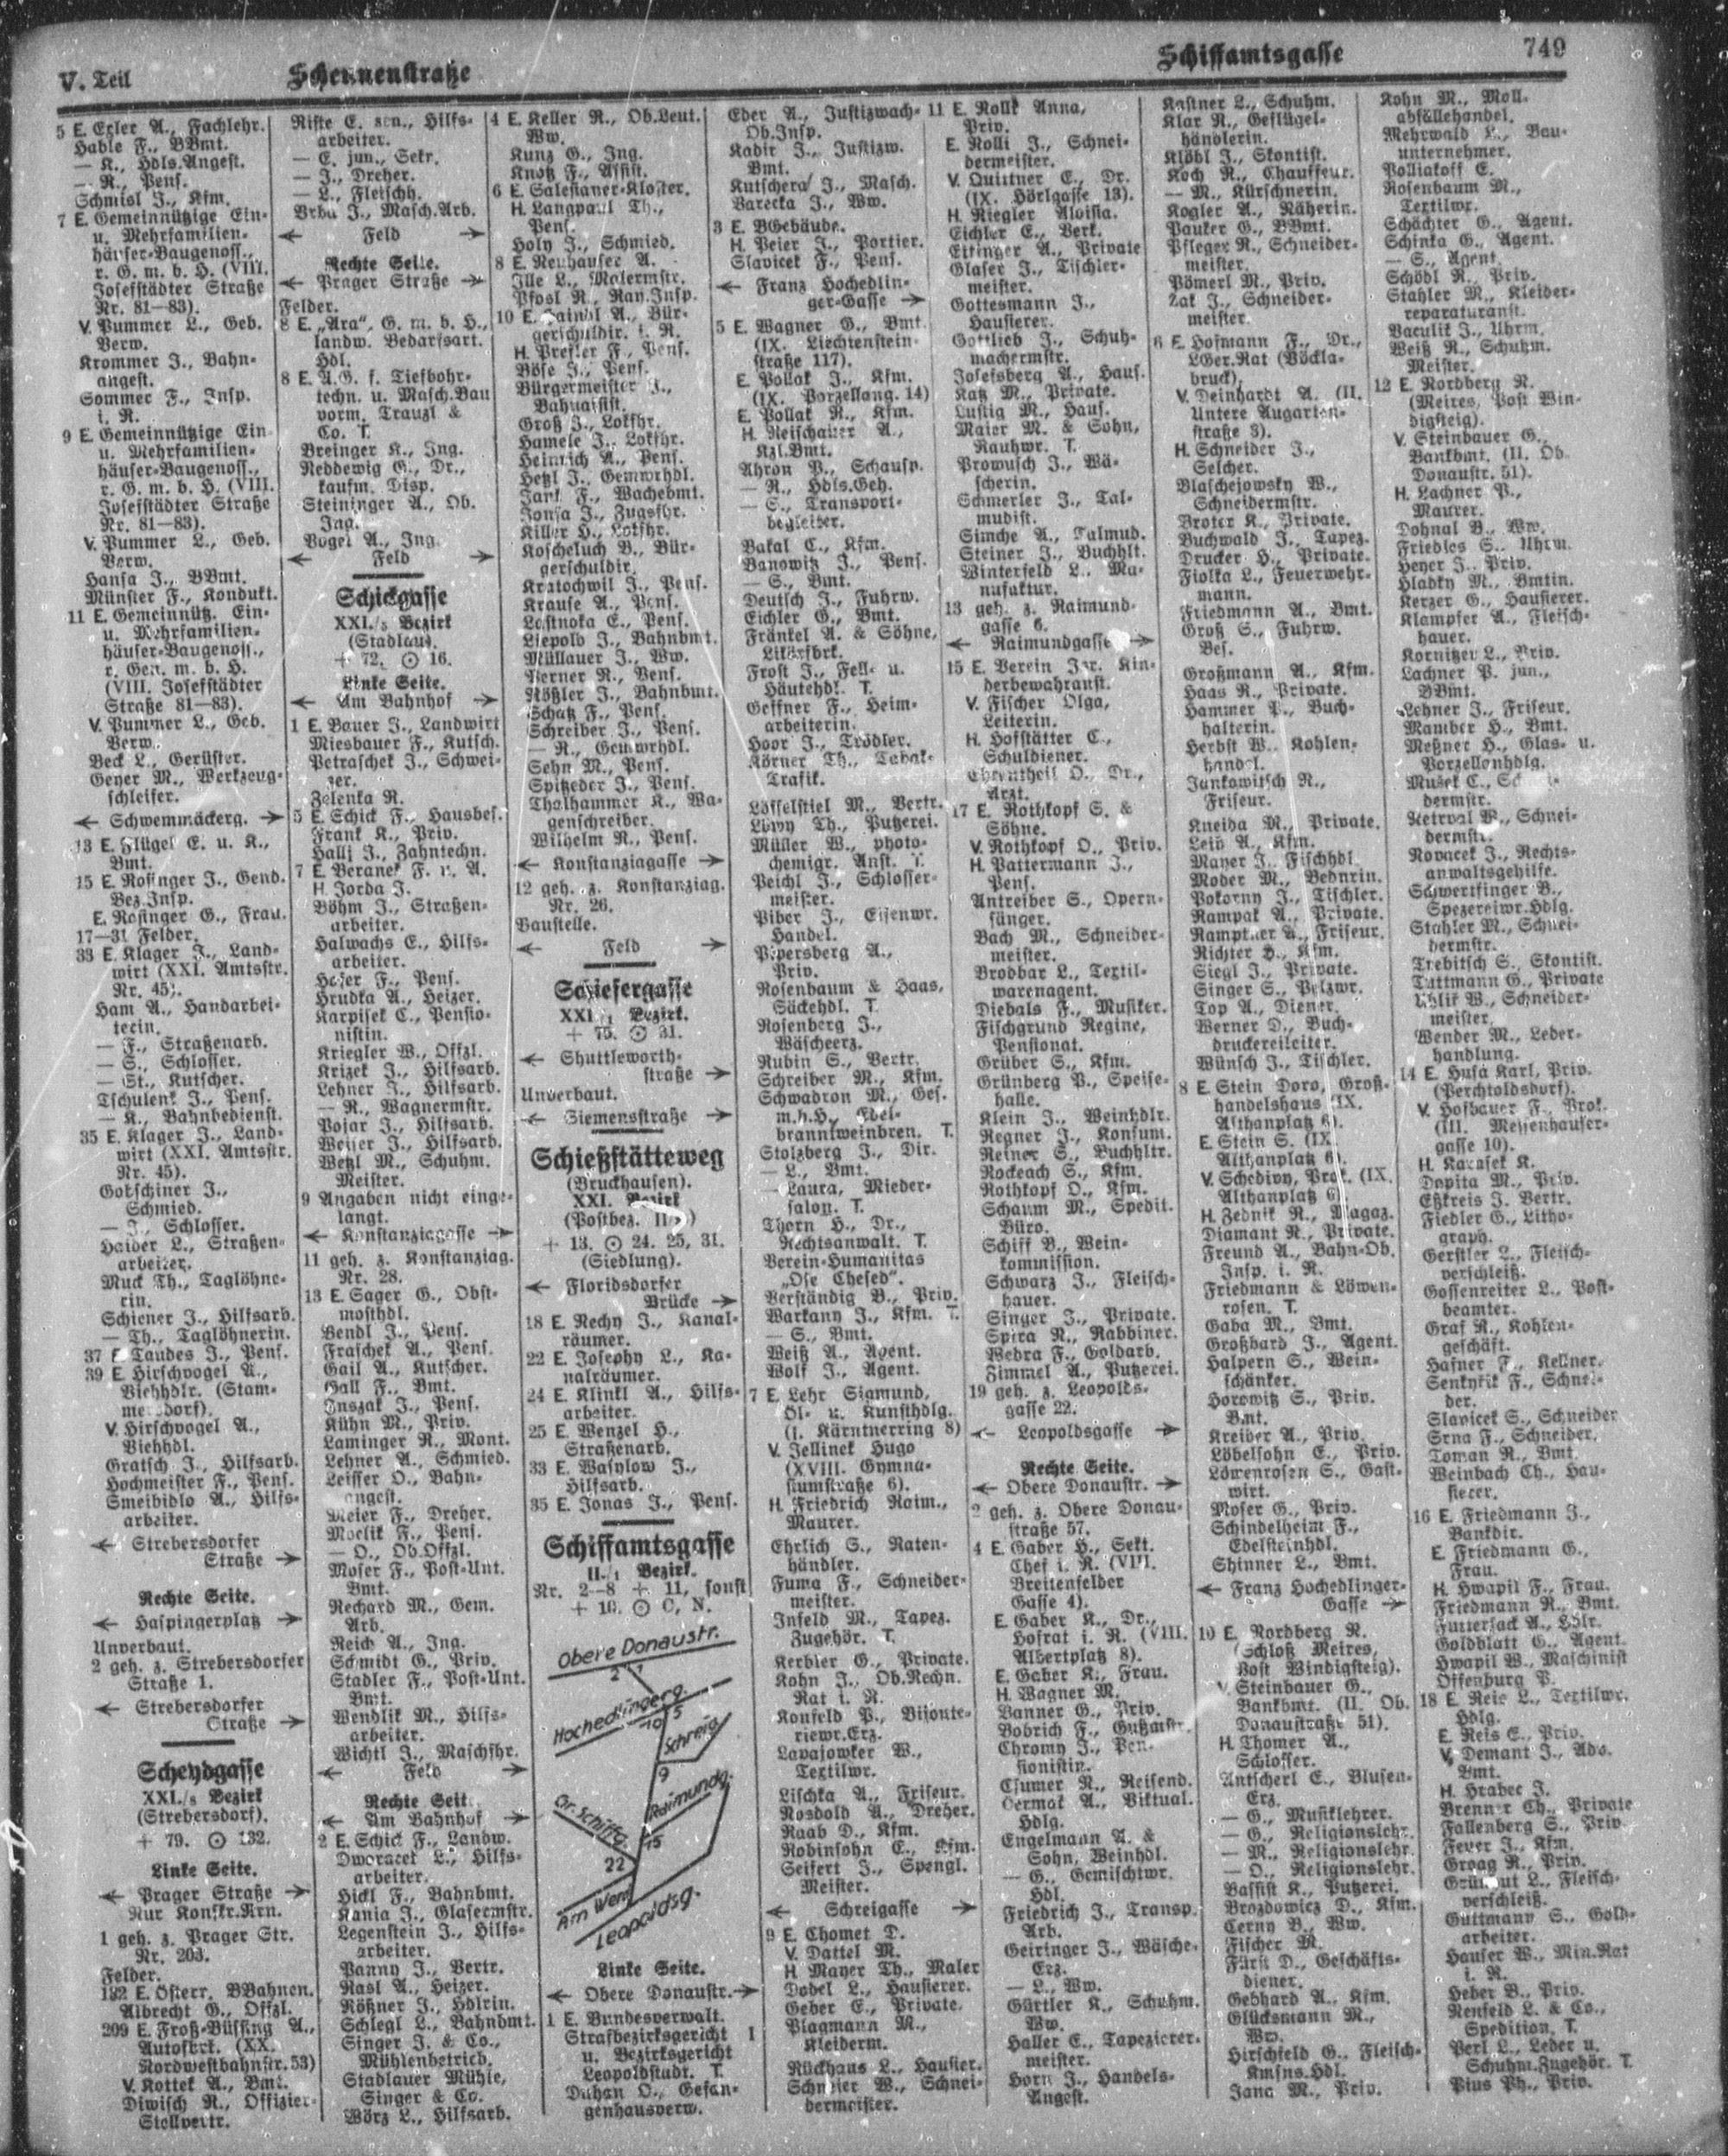 V. Teil
Scheunenstraße
Schiffamtsgasse
749
5 E. Exler A., Fachlehr.
Hable F., BBmt.
— K., Hdls.Angest.
— R., Pens.
Schmisl J., Kfm.
7 E. Gemeinnützige Ein-
u. Mehrfamilien-
häuser-Baugenoss.,
r. G. m. b. H. (VIII.
Josefstädter Straße
Nr. 81—83).
V. Pummer L., Geb.
Verw.
Krommer J., Bahn-
angest.
Sommer F., Insp.
i. R.
9 E. Gemeinnützige Ein-
u. Mehrfamilien-
häuser-Baugenoss.,
r. G. m. b. H. (VIII.
Josefstädter Straße
Nr. 81—83).
V. Pummer L., Geb.
Verw.
Hansa J., BBmt.
Münster F., Kondukt.
11 E. Gemeinnütz. Ein-
u. Mehrfamilien-
häuser-Baugenoss.,
r. Gen. m. b. H.
(VIII. Josefstädter
Straße 81—83).
V. Pummer L., Geb.
Verw.
Beck L., Gerüster.
Geyer M., Werkzeug-
schleifer.
← Schwemmäckerg. →
13 E. Flügel E. u. K.,
Bmt.
15 E. Rosinger J., Gend.
Bez.Insp.
E. Rosinger G., Frau.
17—31 Felder.
33 E. Klager J., Land-
wirt (XXI. Amtsstr.
Nr. 45).
Ham A., Handarbei-
terin.
— F., Straßenarb.
— S., Schlosser.
— St., Kutscher.
Tschulenk J., Pens.
— K., Bahnbedienst.
35 E. Klager J., Land-
wirt (XXI. Amtsstr.
Nr. 45).
Gotschiner J.,
Schmied.
— J., Schlosser.
Haider L., Straßen-
arbeiter.
Muck Th., Taglöhne-
rin.
Schiener J., Hilfsarb.
— Th., Taglöhnerin.
37 E. Taudes J., Pens.
39 E. Hirschvogel A.,
Viehhdlr. (Stam-
mersdorf).
V. Hirschvogel A.,
Viehhdl.
Gratsch J., Hilfsarb.
Hochmeister F., Pens.
Smeibidlo A., Hilfs-
arbeiter.
← Strebersdorfer
Straße →
Rechte Seite.
← Haspingerplatz →
Unverbaut.
2 geh. z. Strebersdorfer
Straße 1.
← Strebersdorfer
Straße →
Scheydgasse
XXI./8 Bezirk
(Strebersdorf).
+ 79. ⊙ 132.
Linke Seite.
← Prager Straße →
Nur Konskr.Nrn.
1 geh. z. Prager Str.
Nr. 203.
Felder.
132 E. Österr. BBahnen.
Albrecht G., Offzl.
209 E. Froß-Büssing A.,
Autofbrk. (XX.
Nordwestbahnstr. 53)
V. Kottek A., Bmt.
Diwisch R., Offizier-
Stellvertr.
Riste E. sen., Hilfs-
arbeiter.
— E. jun., Sekr.
— J., Dreher.
— L., Fleischh.
Vrba J., Masch.Arb.
← Feld →
Rechte Seite.
← Prager Straße →
Felder.
8 E. „Ara“, G. m. b. H.,
landw. Bedarfsart.
Hdl.
8 E. A.G. f. Tiefbohr-
techn. u. Masch.Bau
vorm. Trauzl &
Co. T.
Breinger K., Ing.
Reddewig G., Dr.,
kaufm. Disp.
Steininger A., Ob.
Ing.
Vogel A., Ing.
← Feld →
Schickgasse
XXI./5 Bezirk
(Stadlau).
+ 72. ⊙ 16.
Linke Seite.
← Am Bahnhof →
1 E. Bauer J., Landwirt
Miesbauer F., Kutsch.
Petraschek J., Schwei-
zer.
Zelenka R.
5 E. Schick F., Hausbes.
Frank K., Priv.
Halli J., Zahntechn.
7 E. Beranek F. u. A.
H. Jorda J.
Böhm J., Straßen-
arbeiter.
Halwachs E., Hilfs-
arbeiter.
Hofer F., Pens.
Hrudka A., Heizer.
Karpisek C., Pensio-
nistin.
Kriegler W., Offzl.
Krizek J., Hilfsarb.
Lehner J., Hilfsarb.
— R., Wagnermstr.
Pojar J., Hilfsarb.
Weiser J., Hilfsarb.
Wetzl M., Schuhm.
Meister.
9 Angaben nicht einge-
langt.
← Konstanziagasse →
11 geh. z. Konstanziag.
Nr. 28.
13 E. Sager G., Obst-
mosthdl.
Bendl J., Pens.
Fraschek A., Pens.
Gail A., Kutscher.
Gall F., Bmt.
Juszak J., Pens.
Kühn M., Priv.
Laminger R., Mont.
Lehner A., Schmied.
Leisser O., Bahn-
angest.
Meier F., Dreher.
Moelik F., Pens.
— O., Ob.Offzl.
Moser F., Post-Unt.
Bmt.
Rechard M., Gem.
Arb.
Reich A., Ing.
Schmidt G., Priv.
Stadler F., Post-Unt.
Bmt.
Wendlik M., Hilfs-
arbeiter.
Wichtl J., Maschfhr.
← Feld →
Rechte Seit
← Am Bahnhof →
2 E. Schick F., Landw.
Dworacek L., Hilfs-
arbeiter.
Hickl F., Bahnbmt.
Kania J., Glasermstr.
Legenstein J., Hilfs-
arbeiter.
Panny J., Vertr.
Rasl A., Heizer.
Rößner J., Hdlrin.
Schlegl L., Bahnbmt.
Singer J. & Co.,
Mühlenbetrieb.
Stadlauer Mühle,
Singer & Co.
Wörz L., Hilfsarb.
4 E. Keller R., Ob.Leut.
Ww.
Kunz G., Ing.
Knotz F., Assist.
6 E. Salesianer-Kloster.
H. Langpaul Th.,
Pens.
Holy J., Schmied.
8 E. Neuhauser A.
Jlle L., Malermstr.
Pfosl R., Ray.Insp.
10 E. A., Bür-
gerschuldir. i. R.
H. Preßler F., Pens.
Böse J., Pens.
Bürgermeister J.,
Bahnassist.
Groß J., Lokfhr.
Hamele J., Lokfhr.
Heinrich A., Pens.
Hetzl J., Gemwrhdl.
Jank F., Wachebmt.
Jonsa J., Zugsfhr.
Killer H., Lokfhr.
Koscheluch B., Bür-
gerschuldir.
Kratochwil J., Pens.
Krause A., Pens.
Lestnoka E., Pens.
Liepold J., Bahnbmt.
Müllauer J., Ww.
Perner R., Pens.
Rößler J., Bahnbmt.
Schatz F., Pens.
Schreiber J., Pens.
— R., Gemwrhdl.
Sehn M., Pens.
Spitzeder J., Pens.
Thalhammer K., Wa-
genschreiber.
Wilhelm R., Pens.
← Konstanziagasse →
12 geh. z. Konstanziag.
Nr. 26.
Baustelle.
← Feld →
Schiefergasse
XXI./1 Bezirk.
+ 75. ⊙ 31.
← Shuttleworth-
straße →
Unverbaut.
← Siemensstraße →
Schießstätteweg
(Bruckhausen).
XXI. Bezirk
(Postbez. II/)
+ 13. ⊙ 24. 25, 31.
(Siedlung).
← Floridsdorfer
Brücke →
18 E. Rechy J., Kanal-
räumer.
22 E. Josephy L., Ka-
nalräumer.
24 E. Klinkl A., Hilfs-
arbeiter.
25 E. Wenzel H.,
Straßenarb.
33 E. Wasylow J.,
Hilfsarb.
35 E. Jonas J., Pens.
Schiffamtsgasse
II./1 Bezirk.
Nr. 2—8 + 11, sonst
+ 10. ⊙ C, N.
Obere Donaustr.
2 1
Hochedlingerg.
10 5
Schreig.
9
Raimundg.
Gr. Schiffg.
15
22
Am Werd
Leopoldsg.
Linke Seite.
← Obere Donaustr. →
1 E. Bundesverwalt.
Strafbezirksgericht I
u. Bezirksgericht
Leopoldstadt. T.
Duhan O., Gefan-
genhausverw.
Eder A., Justizwach-
Ob.Insp.
Kadir J., Justizw.
Bmt.
Kutschera J., Masch.
Varecka J., Ww.
3 E. BGebäude.
H. Peier J., Portier.
Slavicek F., Pens.
← Franz Hochedlin-
ger-Gasse →
5 E. Wagner G., Bmt.
(IX. Liechtenstein-
straße 117).
E. Pollak J., Kfm.
(IX. Porzellang. 14)
E. Pollak R., Kfm.
H. Reischauer A.,
Kzl.Bmt.
Ahron P., Schausp.
— R., Hdls.Geh.
— S., Transport-
begleiter.
Bakal C., Kfm.
Banowitz J., Pens.
— S., Bmt.
Deutsch J., Fuhrw.
Eichler G., Bmt.
Fränkel A. & Söhne,
Likörfbrk.
Frost J., Fell- u.
Häutehdl. T.
Geffner F., Heim-
arbeiterin.
Hoor J., Trödler.
Körner Th., Tabak-
Trafik.
Löffelstiel M., Vertr.
Löwy Th., Putzerei.
Müller W., photo-
chemigr. Anst. T.
Peichl J., Schlosser-
meister.
Piber J., Eisenwr.
Handel.
Pipersberg A.,
Priv.
Rosenbaum & Haas,
Säckehdl. T.
Rosenberg J.,
Wäscheerz.
Rubin S., Vertr.
Schreiber M., Kfm.
Schwadron M., Ges.
m.b.H., Edel-
branntweinbren. T.
Stolzberg J., Dir.
— L., Bmt.
— Laura, Mieder-
salon. T.
Thorn H., Dr.,
Rechtsanwalt. T.
Verein-Humanitas
„Ose Chesed“.
Verständig B., Priv.
Warkany J., Kfm. T.
— S., Bmt.
Weiß A., Agent.
Wolf J., Agent.
7 E. Lehr Sigmund,
Öl- u. Kunsthdlg.
(I. Kärntnerring 8)
V. Jellinek Hugo
(XVIII. Gymna-
siumstraße 6).
H. Friedrich Raim.,
Maurer.
Ehrlich S., Raten-
händler.
Fuma F., Schneider-
meister.
Infeld M., Tapez.
Zugehör. T.
Kerbler G., Private.
Kohn J., Ob.Rechn.
Rat i. R.
Konfeld P., Bijoute-
riewr.Erz.
Lavajowker W.,
Textilwr.
Lischka A., Friseur.
Rosbold A., Dreher.
Raab D., Kfm.
Robinsohn E., Kfm.
Seifert J., Spengl.
Meister.
← Schreigasse →
9 E. Chomet D.
V. Dattel M.
H Mayer Th., Maler
Dodel L., Hausierer.
Geber E., Private.
Plagmann M.,
Kleiderm.
Rückhaus L., Hausier.
Schneier W., Schnei-
dermeister.
11 E. Rolli Anna,
Priv.
E. Rolli J., Schnei-
dermeister.
V. Quittner E., Dr.
(IX. Hörlgasse 13).
H. Riegler Aloisia.
Eichler E., Verk.
Ettinger A., Private
Glaser J., Tischler-
meister.
Gottesmann J.,
Hausierer.
Gottlieb J., Schuh-
machermstr.
Josefsberg A., Haus.
Katz M., Private.
Lustig M., Haus.
Maier M. & Sohn,
Rauhwr. T.
Prowusch J., Wä-
scherin.
Schmerler J., Tal-
mudist.
Simche A., Talmud.
Steiner J., Buchhlt.
Winterfeld L., Ma-
nufaktur.
13 geh. z. Raimund-
gasse 6.
← Raimundgasse →
15 E. Verein Isr. Kin-
derbewahranst.
V. Fischer Olga,
Leiterin.
H. Hofstätter C.,
Schuldiener.
Ehrentheil O., Dr.,
Arzt.
17 E. Rothkopf S. &
Söhne.
V. Rothkopf O., Priv.
H. Pattermann J.,
Pens.
Antreiber S., Opern-
sänger.
Bach M., Schneider-
meister.
Brodbar L., Textil-
warenagent.
Diebals F., Musiker.
Fischgrund Regine,
Pensionat.
Grüber S., Kfm.
Grünberg P., Speise-
halle.
Klein J., Weinhdlr.
Regner J., Konsum.
Reiner S., Buchhltr.
Rockeach S., Kfm.
Rothkopf O., Kfm.
Schaum M., Spedit.
Büro.
Schiff B., Wein-
kommission.
Schwarz J., Fleisch-
hauer.
Singer J., Private.
Spira R., Rabbiner.
Wedra F., Goldarb.
Zimmel A., Putzerei.
19 geh. z. Leopolds-
gasse 22.
← Leopoldsgasse →
Rechte Seite.
← Obere Donaustr. →
2 geh. z. Obere Donau-
straße 57.
4 E. Gaber H., Sekt.
Chef i. R. (VIII.
Breitenfelder
Gasse 4).
E. Gaber K., Dr.,
Hofrat i. R. (VIII.
Albertplatz 8).
E. Gaber K., Frau.
H. Wagner M.
Banner G., Priv.
Bobrich F., Gußmstr.
Chromy J., Pen-
sionistin.
Csumer R., Reisend.
Cermak A., Viktual.
Hdlg.
Engelmann A. &
Sohn, Weinhdl.
— G., Gemischtwr.
Hdl.
Friedrich J., Transp.
Arb.
Geiringer J., Wäsche-
Erz.
— L., Ww.
Gürtler K., Schuhm.
Ww.
Haller E., Tapezierer-
meister.
Horn J., Handels-
Angest.
Kastner L., Schuhm.
Klar R., Geflügel-
händlerin.
Klöbl J., Skontist.
Koch R., Chauffeur.
— M., Kürschnerin.
Kogler A., Näherin.
Pauker G., BBmt.
Pfleger R., Schneider-
meister.
Pömerl M., Priv.
Zak J., Schneider-
meister.
6 E. Hofmann F., Dr.,
LGer.Rat (Vöckla-
bruck).
V. Deinhardt A. (II.
Untere Augarten-
straße 3).
H. Schneider J.,
Selcher.
Blaschejowsky W.,
Schneidermstr.
Broter K., Private.
Buchwald J., Tapez.
Drucker H., Private.
Fiolka L., Feuerwehr-
mann.
Friedmann A., Bmt.
Groß S., Fuhrw.
Bes.
Großmann A., Kfm.
Haas R., Private.
Hammer P., Buch-
halterin.
Herbst W., Kohlen-
handel.
Jankowitsch R.,
Friseur.
Kneida M., Private.
Leib A., Kfm.
Mayer J., Fischhdl
Moder M., Bednrin.
Pokorny J., Tischler.
Rampak A., Private.
Ramptner A., Friseur.
Richter B., Kfm.
Siegl J., Private.
Singer S., Pelzwr.
Top A., Diener.
Werner D., Buch-
druckereileiter.
Wünsch J., Tischler.
8 E. Stein Doro, Groß-
handelshaus (IX.
Althanplatz 6).
E. Stein S. (IX.
Althanplatz 6).
V. Schediwy, Prok. (IX.
Althanplatz 6)
H. Zednik R., Magaz.
Diamant R., Private.
Freund A., Bahn-Ob.
Insp. i. R.
Friedmann & Löwen-
rosen. T.
Gaba M., Bmt.
Großbard J., Agent.
Halpern S., Wein-
schänker.
Horowitz S., Priv.
Bmt.
Kreiber A., Priv.
Löbelsohn E., Priv.
Löwenrosen S., Gast-
wirt.
Moser G., Priv.
Schindelheim F.,
Edelsteinhdl.
Shinner L., Bmt.
← Franz Hochedlinger-
Gasse →
10 E. Nordberg R.
(Schloß Meires,
Post Windigsteig).
V. Steinbauer G.,
Bankbmt. (II. Ob.
Donaustraße 51).
H. Thomer A.,
Schlosser.
Antscherl E., Blusen-
Erz.
— G., Musiklehrer.
— G., Religionslehr.
— M., Religionslehr.
— O., Religionslehr.
Bassist K., Putzerei.
Brozdowicz D., Kfm.
Cerny B., Ww.
Fischer M.
Fürst D., Geschäfts-
diener.
Gebhard A., Kfm.
Glücksmann M.,
Ww.
Hirschfeld G., Fleisch-
Kmsns.Hdl.
Jana M., Priv.
Kohn M., Moll-
abfällehandel.
Mehrwald L., Bau-
unternehmer.
Polliakoff E.
Rosenbaum M.,
Textilwr.
Schächter G., Agent.
Schinka G., Agent.
— S., Agent.
Schödl R., Priv.
Stahler M., Kleider-
reparaturanst.
Vaculik J., Uhrm.
Weiß R., Schuhm.
Meister.
12 E. Nordberg R.
(Meires, Post Win-
digsteig).
V. Steinbauer G.,
Bankbmt. (II. Ob.
Donaustr. 51).
H. Lachner P.,
Maurer.
Dohnal B., Ww.
Friedles S., Uhrm.
Heyer J., Priv.
Hladky M., Bmtin.
Kerzer G., Hausierer.
Klampfer A., Fleisch-
hauer.
Kornitzer L., Priv.
Lachner P. jun.,
BBmt.
Lehner J., Friseur.
Mamber H., Bmt.
Meßner H., Glas- u.
Porzellanhdlg.
Musek C.,
dermstr.
Netrval W., Schnei-
dermstr.
Novacek J., Rechts-
anwaltsgehilfe.
Schwertfinger B.,
Spezereiwr.Hdlg.
Stahler M., Schnei-
dermstr.
Trebitsch S., Skontist.
Tuttmann G., Private
Uhlik W., Schneider-
meister.
Wender M., Leder-
handlung.
14 E. Husa Karl, Priv.
(Perchtoldsdorf).
V. Hofbauer F., Prok.
(III. Messenhauser-
gasse 10).
H. Karasek K.
Dopita M., Priv.
Eßkreis J. Vertr.
Fiedler G., Litho-
graph.
Gerstler L., Fleisch-
verschleiß.
Gossenreiter L., Post-
beamter.
Graf R., Kohlen-
geschäft.
Hafner F., Kellner.
Senkyrik F., Schnei-
der.
Slavicek S., Schneider
Srna F., Schneider.
Toman R., Bmt.
Weinbach Ch., Hau-
sierer.
16 E. Friedmann J.,
Bankdir.
E. Friedmann G.,
Frau.
H. Hwapil F., Frau.
Friedmann R., Bmt.
Futtersack A., Hdlr.
Goldblatt G., Agent.
Hwapil W., Maschinist
Offenburg P.
18 E. Reis L., Textilwr.
Hdlg.
E. Reis E., Priv.
V. Demant J., Adv.
Bmt.
H. Hrabec J.
Brenner Ch., Private
Fallenberg S., Priv.
Feyer J., Kfm.
Groag R., Priv.
Grünhut L., Fleisch-
verschleiß.
Guttmann S., Gold-
arbeiter.
Hauser W., Min.Rat
i. R.
Heber B., Priv.
Renfeld L. & Co.,
Spedition. T.
Perl L., Leder u.
Schuhm.Zugehör. T.
Pius Ph., Priv.